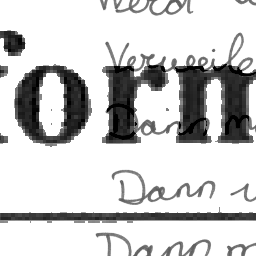 Werd
Verweile
form
Dann
Dann
Dann